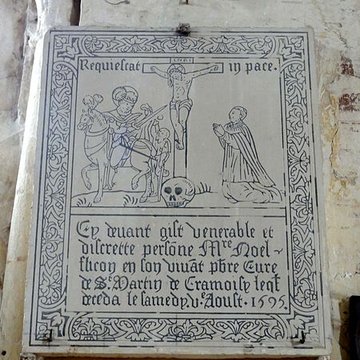 INRI
Requiescat in pace.
Cy devant gist venerable et
discrette persōne Mre Noel
en son vivāt pbre Cure
de St Martin de Cramoisy leql
deceda le samedy v. Aoust. 1595.